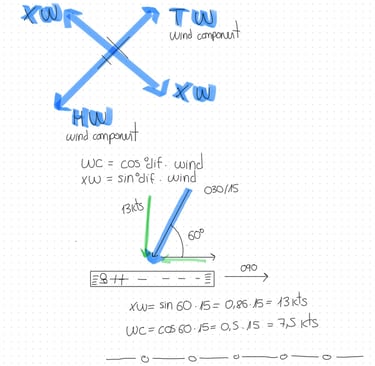 XW
TW
wind component
XW
HW
wind component
WC = cos°dif. wind
XW = sin°dif. wind
030/15
13kts
60°
090
XW = sin 60 · 15 = 0,86 · 15 = 13 kts
WC = cos 60 · 15 = 0,5 · 15 = 7,5 kts